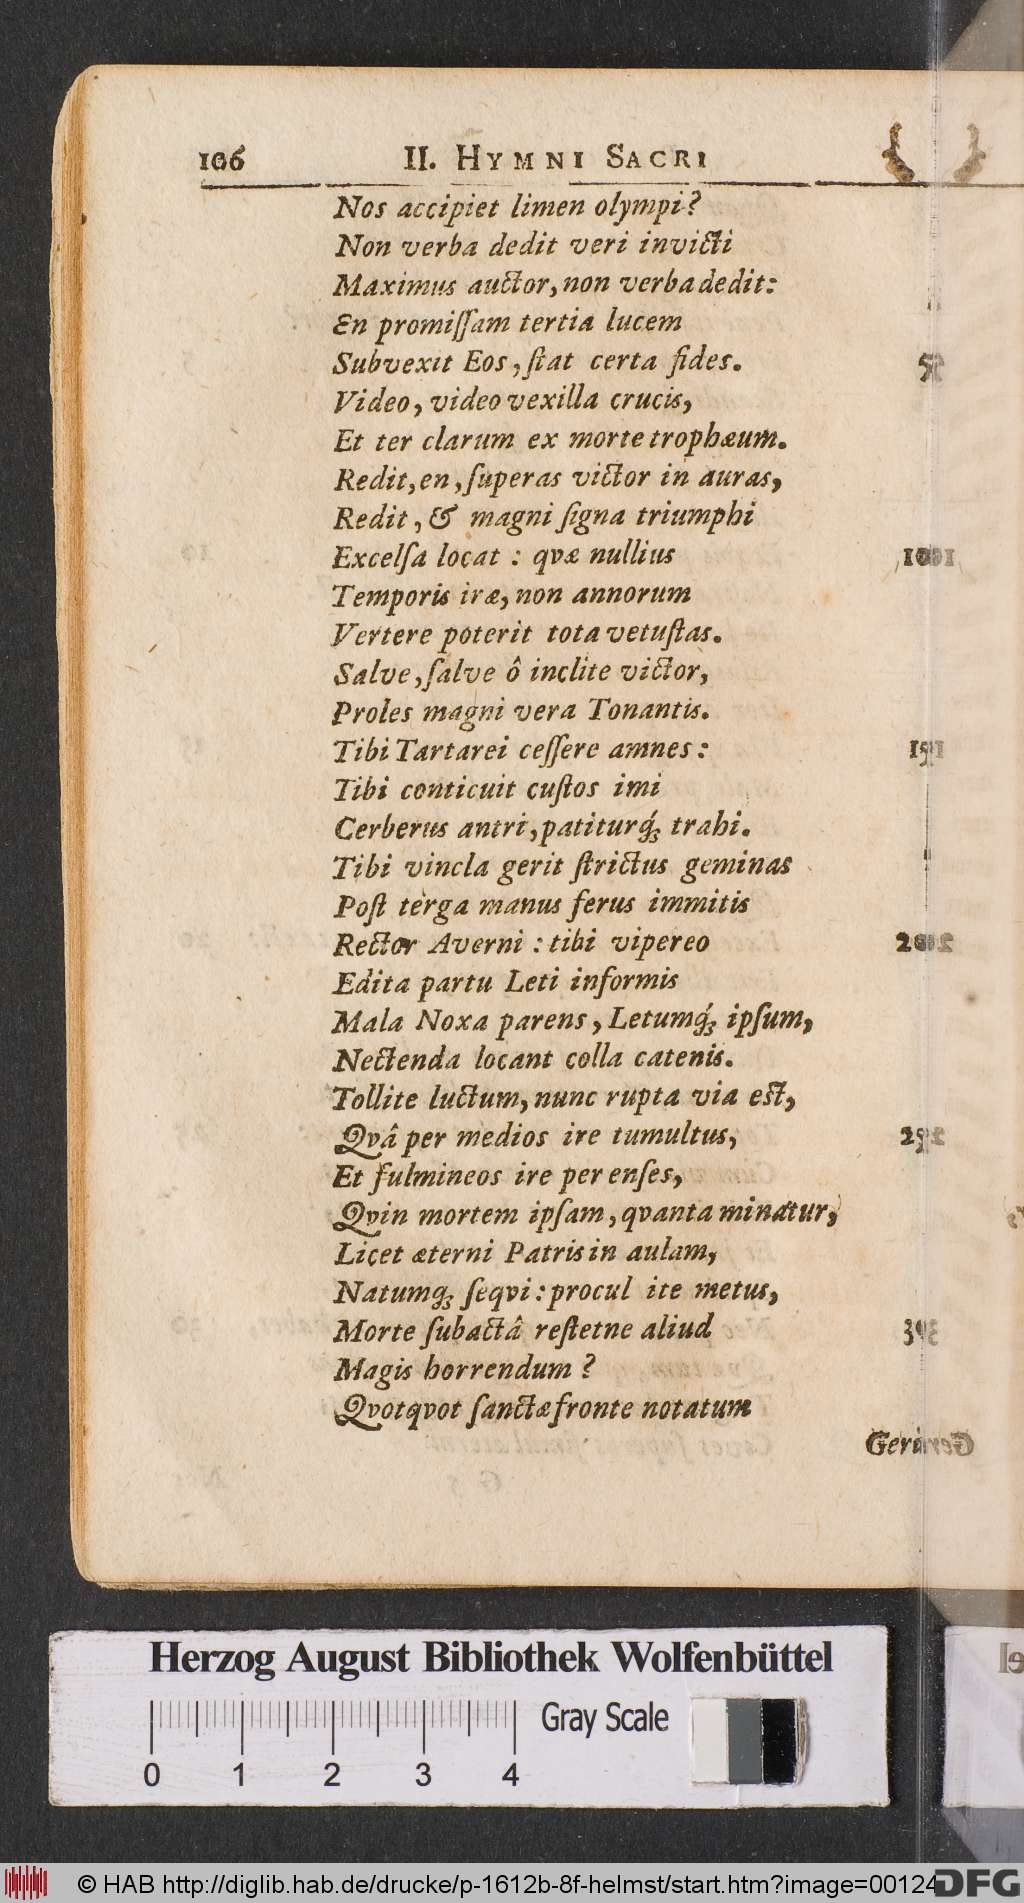 106 II. HYMNI SACRI
Nos accipiet limen olympi?
Non verba dedit veri invicti
Maximus auctor, non verba dedit:
En promiſſam tertia lucem
Subvexit Eos, ſtat certa fides. 5
Video, video vexilla crucis,
Et ter clarum ex morte trophæum.
Redit, en, ſuperas victor in auras,
Redit, & magni ſigna triumphi
Excelſa locat : qvæ nullius 10
Temporis iræ, non annorum
Vertere poterit tota vetuſtas.
Salve, ſalve ô inclite victor,
Proles magni vera Tonantis.
Tibi Tartarei ceſſere amnes: 15
Tibi conticuit cuſtos imi
Cerberus antri, patiturq́ꝫ trahi.
Tibi vincla gerit ſtrictus geminas
Poſt terga manus ferus immitis
Rector Averni : tibi vipereo 20
Edita partu Leti informis
Mala Noxa parens, Letumq́ꝫ ipſum,
Nectenda locant colla catenis.
Tollite luctum, nunc rupta via est,
Qvâ per medios ire tumultus, 25
Et fulmineos ire per enſes,
Qvin mortem ipſam, qvanta minatur,
Licet æterni Patris in aulam,
Natumqꝫ ſeqvi: procul ite metus,
Morte ſubactâ reſtetne aliud 30
Magis horrendum?
Qvotqvot ſanctæ fronte notatum
Herzog August Bibliothek Wolfenbüttel
0 1 2 3 4 Gray Scale
© HAB http://diglib.hab.de/drucke/p-1612b-8f-helmst/start.htm?image=00124
DFG